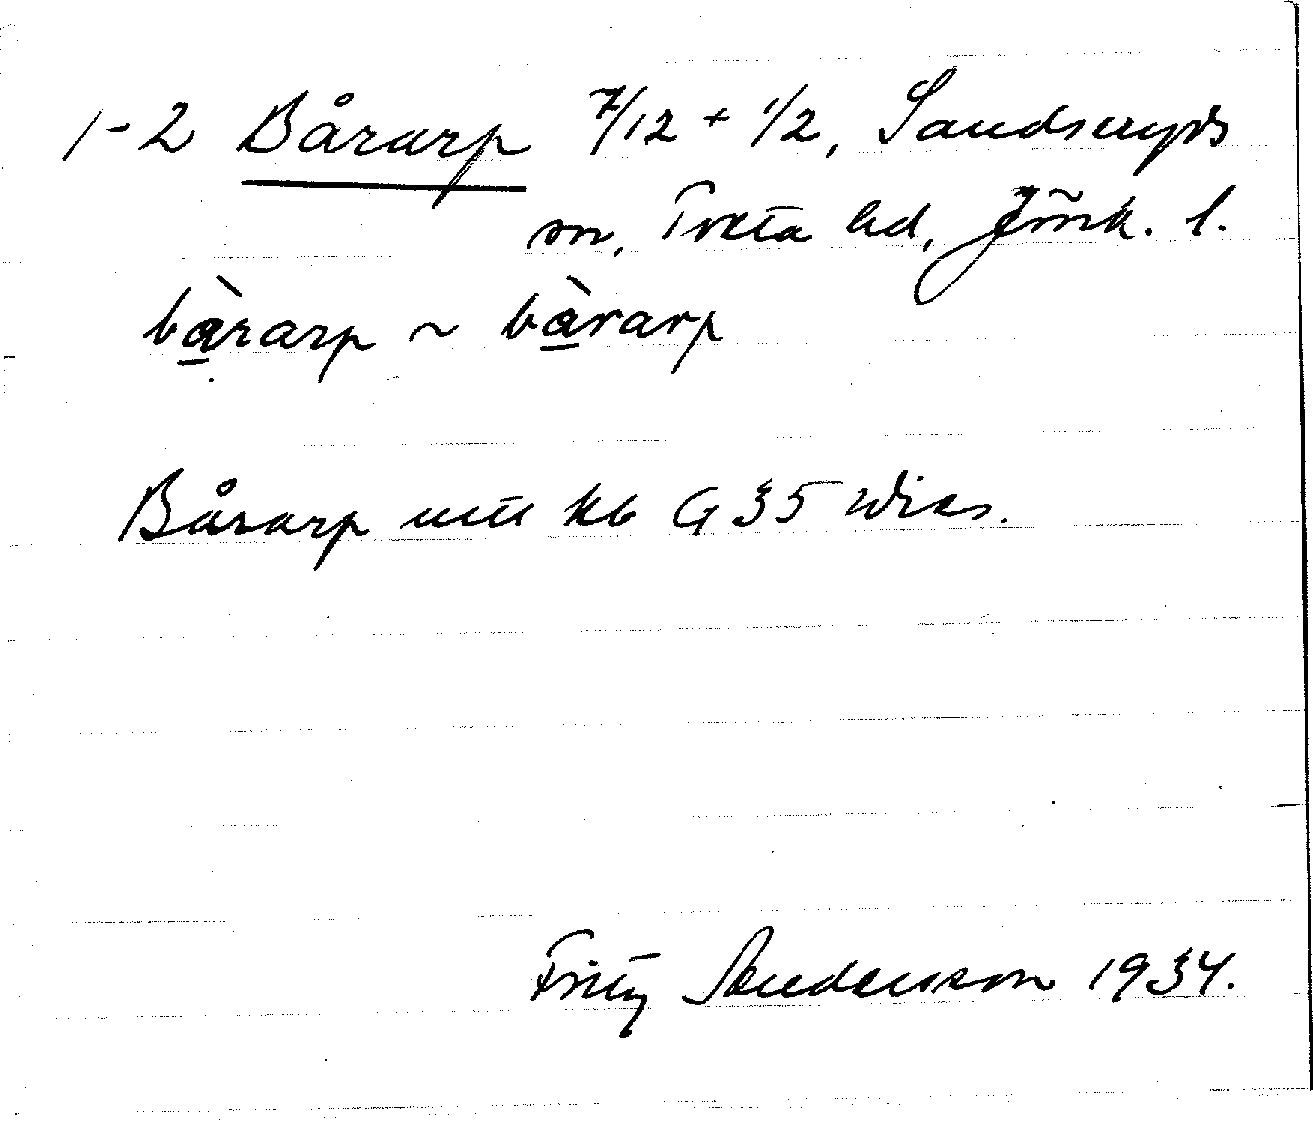 1-2 Bårarp 7/12 + 1/2, Sandseryds
sn, Tveta hd, Jönk. l.
bàrarp ~ bàrarp
Bårarp kb G 35
Fritz Andersson 1934.